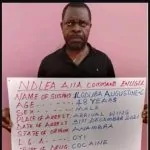 NDLEA AIIA COMMAND ENUGU
NAME OF SUSPECT AUGUSTINE
AGE 48 YEARS
SEX MALE
PLACE OF ARREST ARRIVAL WING
DATE OF ARREST 31ST DECEMBER 2021
STATE OF ORIGIN ANAMBRA
L.G.A OYI
COCAINE